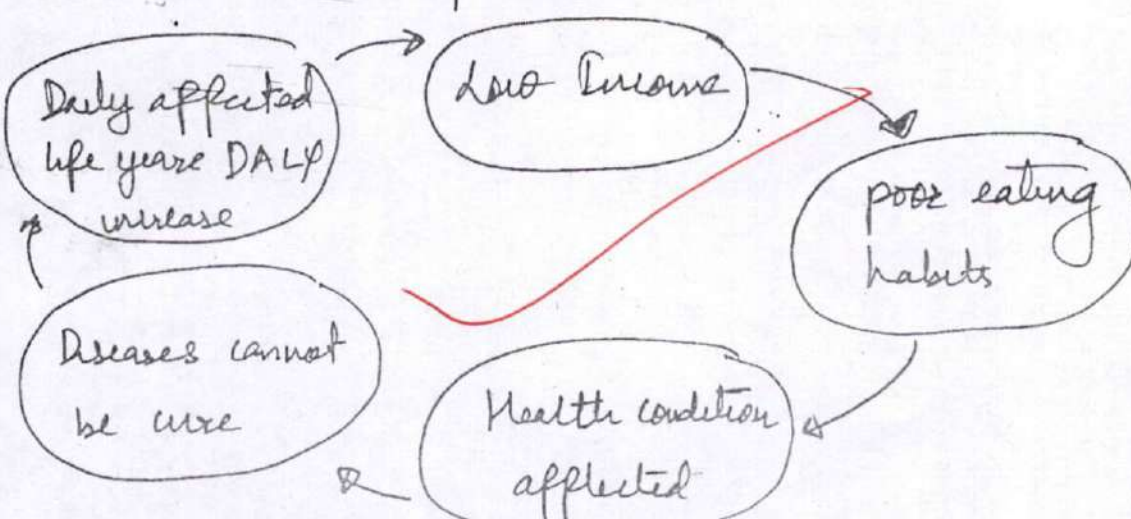 Daily affected
life years DALY
increase
Low Income
poor eating
habits
Health condition
affected
Diseases cannot
be cure